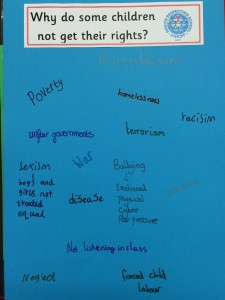 Why do some children
not get their rights?
Poverty
homelessness
racisim
unfair governments
terrorism
War
Sexism
boys and
girls not
treated
equal
disease
Bullying
Emotional
physical
Cyber
Peer pressure
Not listening in class
Neglect
forced child
labour